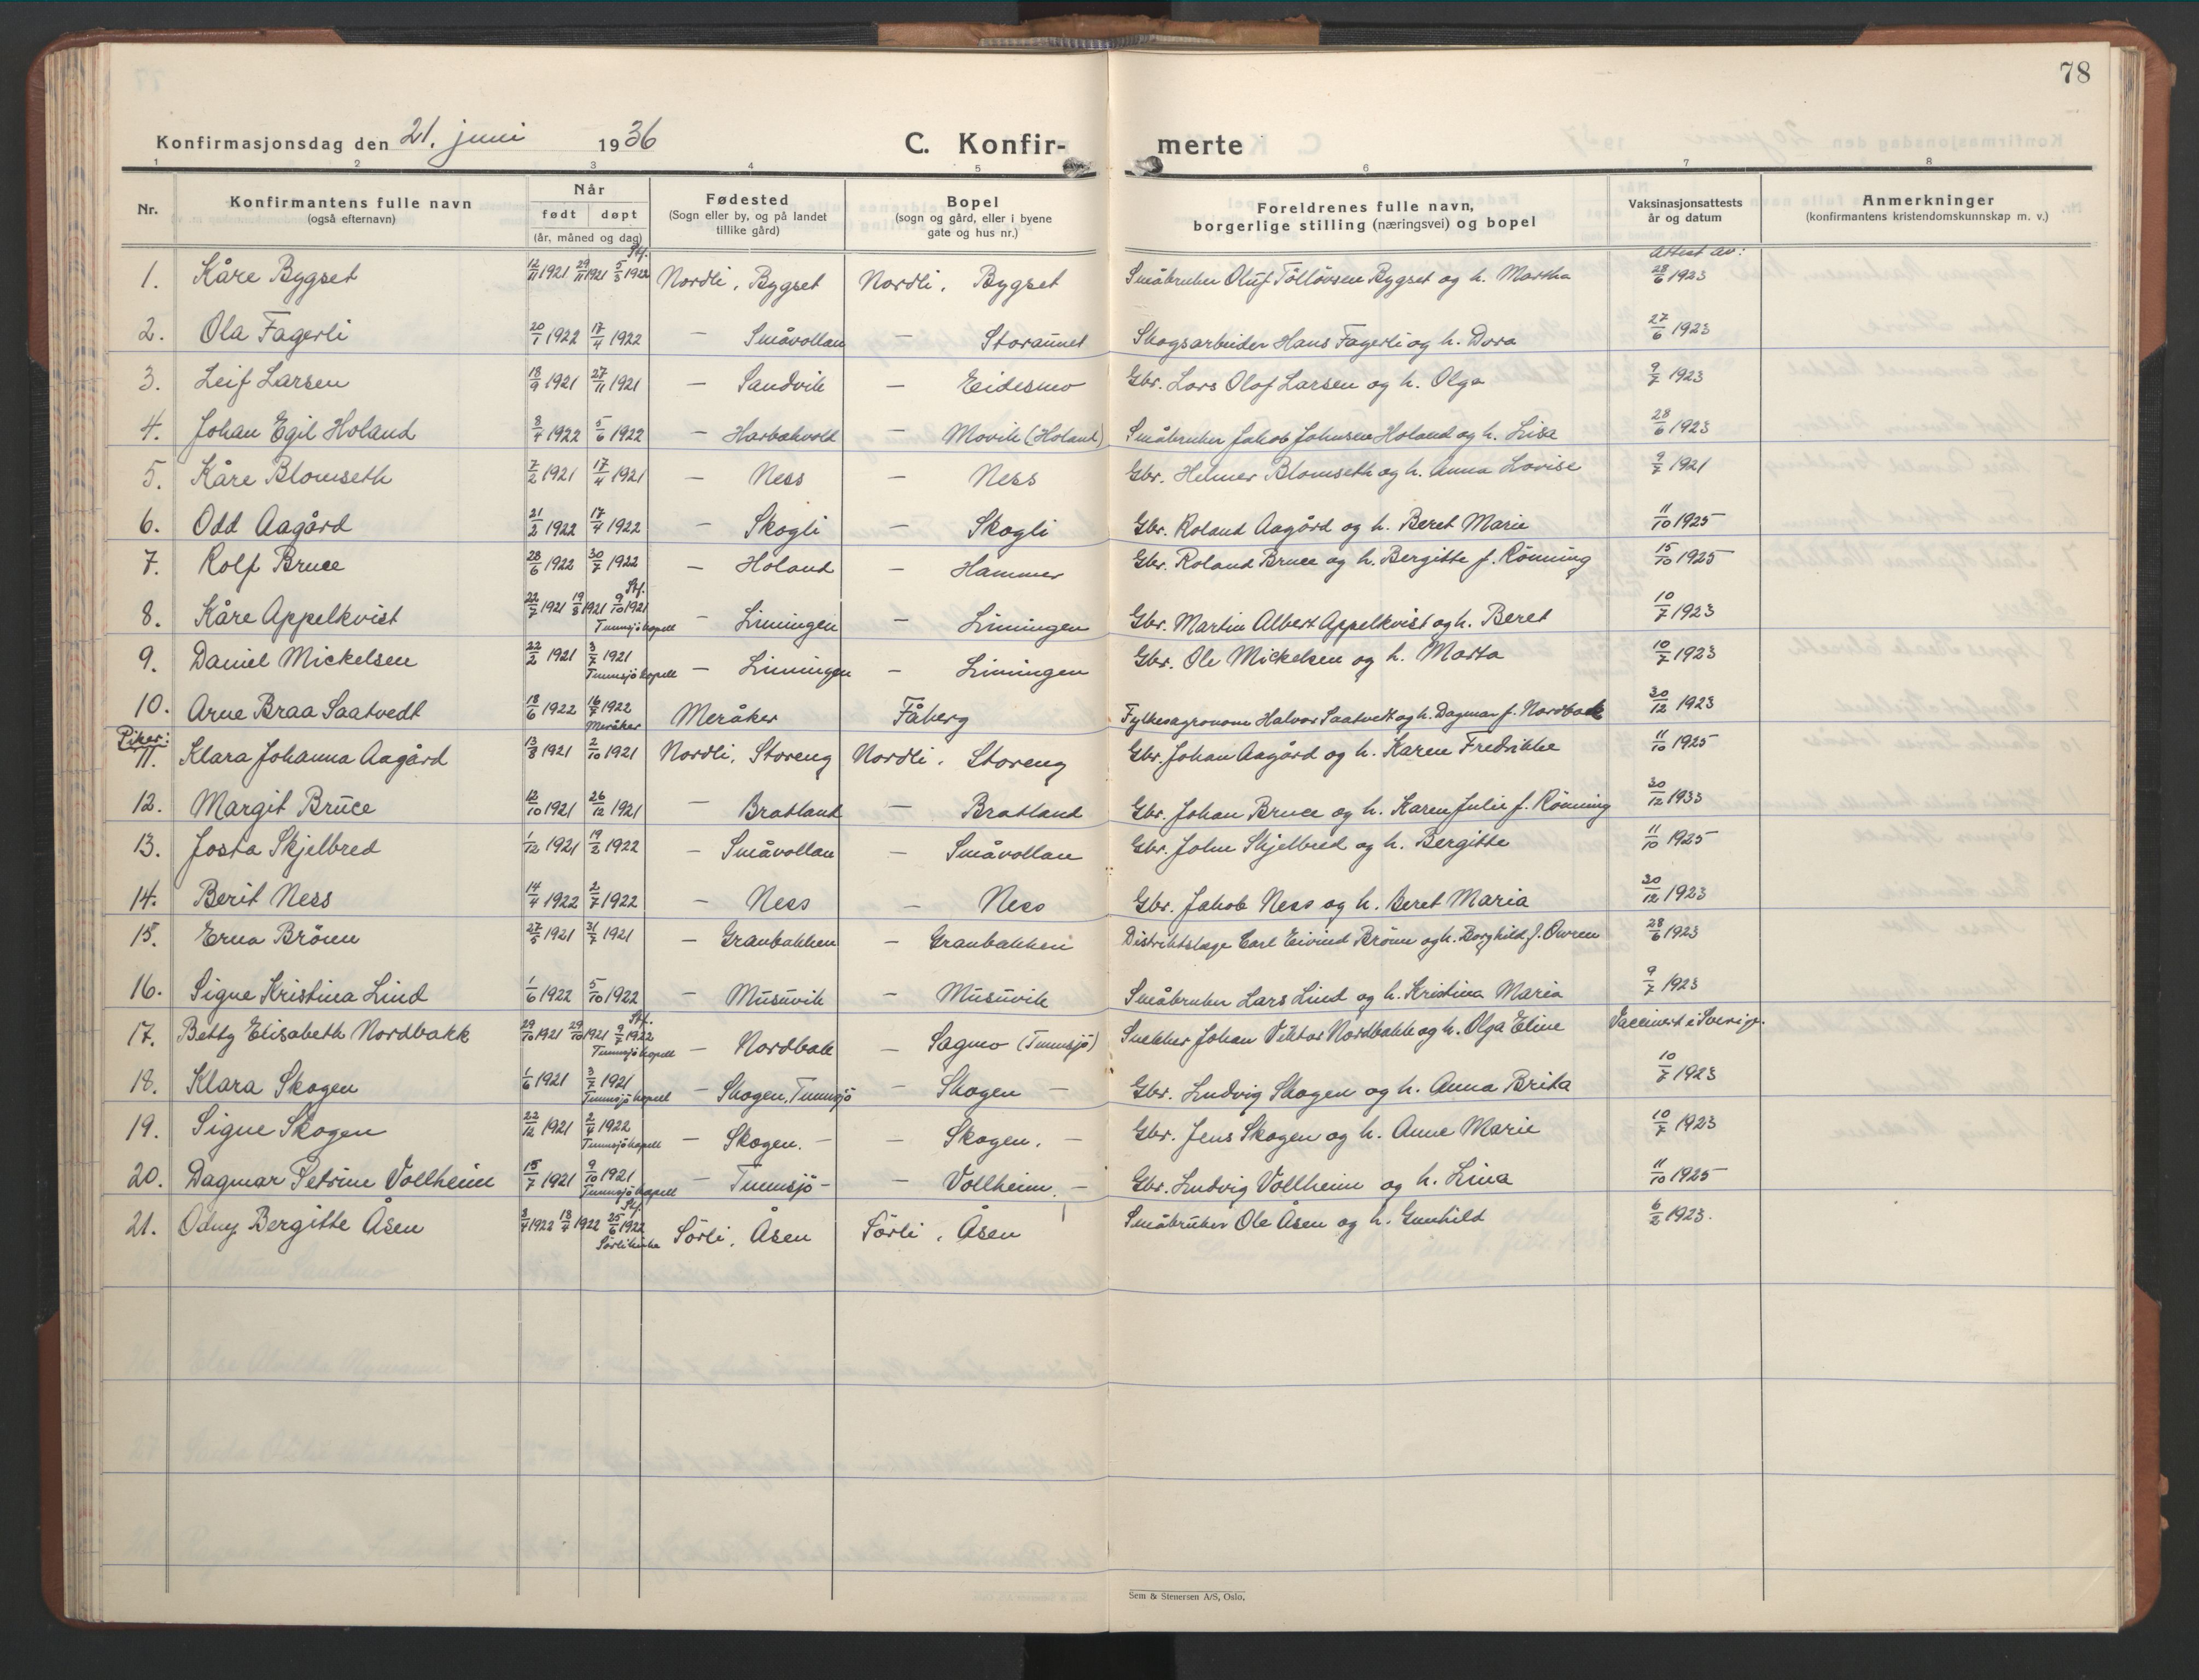 78
Konfirmasjonsdag den 21. juni 1936 C. Konfirmerte
1 2 3 4 5 6 7 8
Nr. Konfirmantens fulle navn (også efternavn) Når født døpt (år, måned og dag) Fødested (Sogn eller by, og på landet tillike gård) Bopel (sogn og gård, eller i byene gate og hus nr.) Foreldrenes fulle navn, borgerlige stilling (næringsvei) og bopel Vaksinasjonsattests år og datum Anmerkninger (konfirmantens kristendomskunnskap m. v.)
Stf. attest av:
1. Kåre Bygset 12/11 1921 29/11 1921 5/3 1922 Nordli, Bygset Nordli, Bygset Småbruker Oluf Tølløvsen Bygset og h. Martha 28/6 1923
2. Ola Fagerli 20/1 1922 17/4 1922 — Småvollan — Storaunet Skogsarbeider Hans Fagerli og h. Dora 27/6 1923
3. Leif Larsen 18/9 1921 27/11 1921 — Sandvik — Eidesmo Gbr. Lars Olof Larsen og h. Olga 9/7 1923
4. Johan Egil Holand 3/4 1922 5/6 1922 — Harbakvold — Movik (Holand) Småbruker Jakob Johnsen Holand og h. Lisa 28/6 1923
5. Kåre Blomseth 7/2 1921 17/4 1921 — Ness — Ness Gbr. Helmer Blomseth og h. Anna Lovise 9/7 1921
6. Odd Aagård 21/2 1922 17/4 1922 — Skogli — Skogli Gbr. Roland Aagård og h. Beret Marie 11/10 1925
7. Rolf Bruce 28/6 1922 30/7 1922 — Holand — Hammer Gbr. Roland Bruce og h. Bergitte f. Rönning 15/10 1925
Stf.
8. Kåre Appelkvist 22/7 1921 19/8 1921 9/10 1921 Tunnsjökapell — Limingen — Limingen Gbr. Martin Albert Appelkvist og h. Beret 10/7 1923
9. Daniel Mickelsen 22/2 1921 3/7 1921 Tunnsjökapell — Limingen — Limingen Gbr. Ole Mickelsen og h. Marta 10/7 1923
10. Arne Braa Saatvedt 18/6 1922 16/7 1922 Meråker Meråker Fåberg Fylkesagronom Halvor Saatvedt og h. Dagmar f. Nordbakk 30/12 1923
Piker:
11. Klara Johanna Aagård 13/8 1921 2/10 1921 Nordli, Storeng Nordli, Storeng Gbr. Johan Aagård og h. Karen Fredrikke 11/10 1925
12. Margit Bruce 12/10 1921 26/12 1921 — Bratland — Bratland Gbr. Johan Bruce og h. Karen Julie f. Rönning 30/12 1933
13. Josta Skjelbred 1/12 1921 19/2 1922 — Småvollan — Småvollan Gbr. John Skjelbred og h. Bergitte 11/10 1925
14. Berit Ness 14/4 1922 2/7 1922 — Ness — Ness Gbr. Jakob Ness og h. Beret Maria 30/12 1923
15. Erna Brönn 27/5 1921 31/7 1921 — Granbakken — Granbakken Distriktslæge Carl Eivind Brönn og h. Borghild f. Owren 28/6 1923
16. Signe Kristina Lind 1/6 1922 5/10 1922 — Musuvik — Musuvik Småbruker Lars Lind og h. Kristina Maria 9/7 1923
Stf.
17. Betty Elisabeth Nordbakk 29/10 1921 29/10 1921 9/7 1922 Tunnsjökapell — Nordbakk — Sagmo (Tunnsjö) Snekker Johan Viktor Nordbakk og h. Olga Eline Vaccinert i Sverige.
18. Klara Skogen 1/6 1921 3/7 1921 Tunnsjökapell — Skogen, Tunnsjö — Skogen — Gbr. Ludvig Skogen og h. Anna Brita 10/7 1923
19. Signe Skogen 22/12 1921 2/4 1922 Tunnsjökapell — Skogen. — — Skogen. — Gbr. Jens Skogen og h. Anne Marie 10/7 1923
20. Dagmar Petrine Vollheim 15/7 1921 9/10 1921 Tunnsjökapell — Tunnsjö — — Vollheim. — Gbr. Ludvig Vollheim og h. Lina 11/10 1925
Stf.
21. Odny Bergitte Åsen 3/4 1922 18/4 1922 25/6 1922 Sörli kirke Sörli, Åsen Sörli, Åsen Småbruker Ole Åsen og h. Gunhild 6/2 1923.
Sem & Stenersen A/S, Oslo.